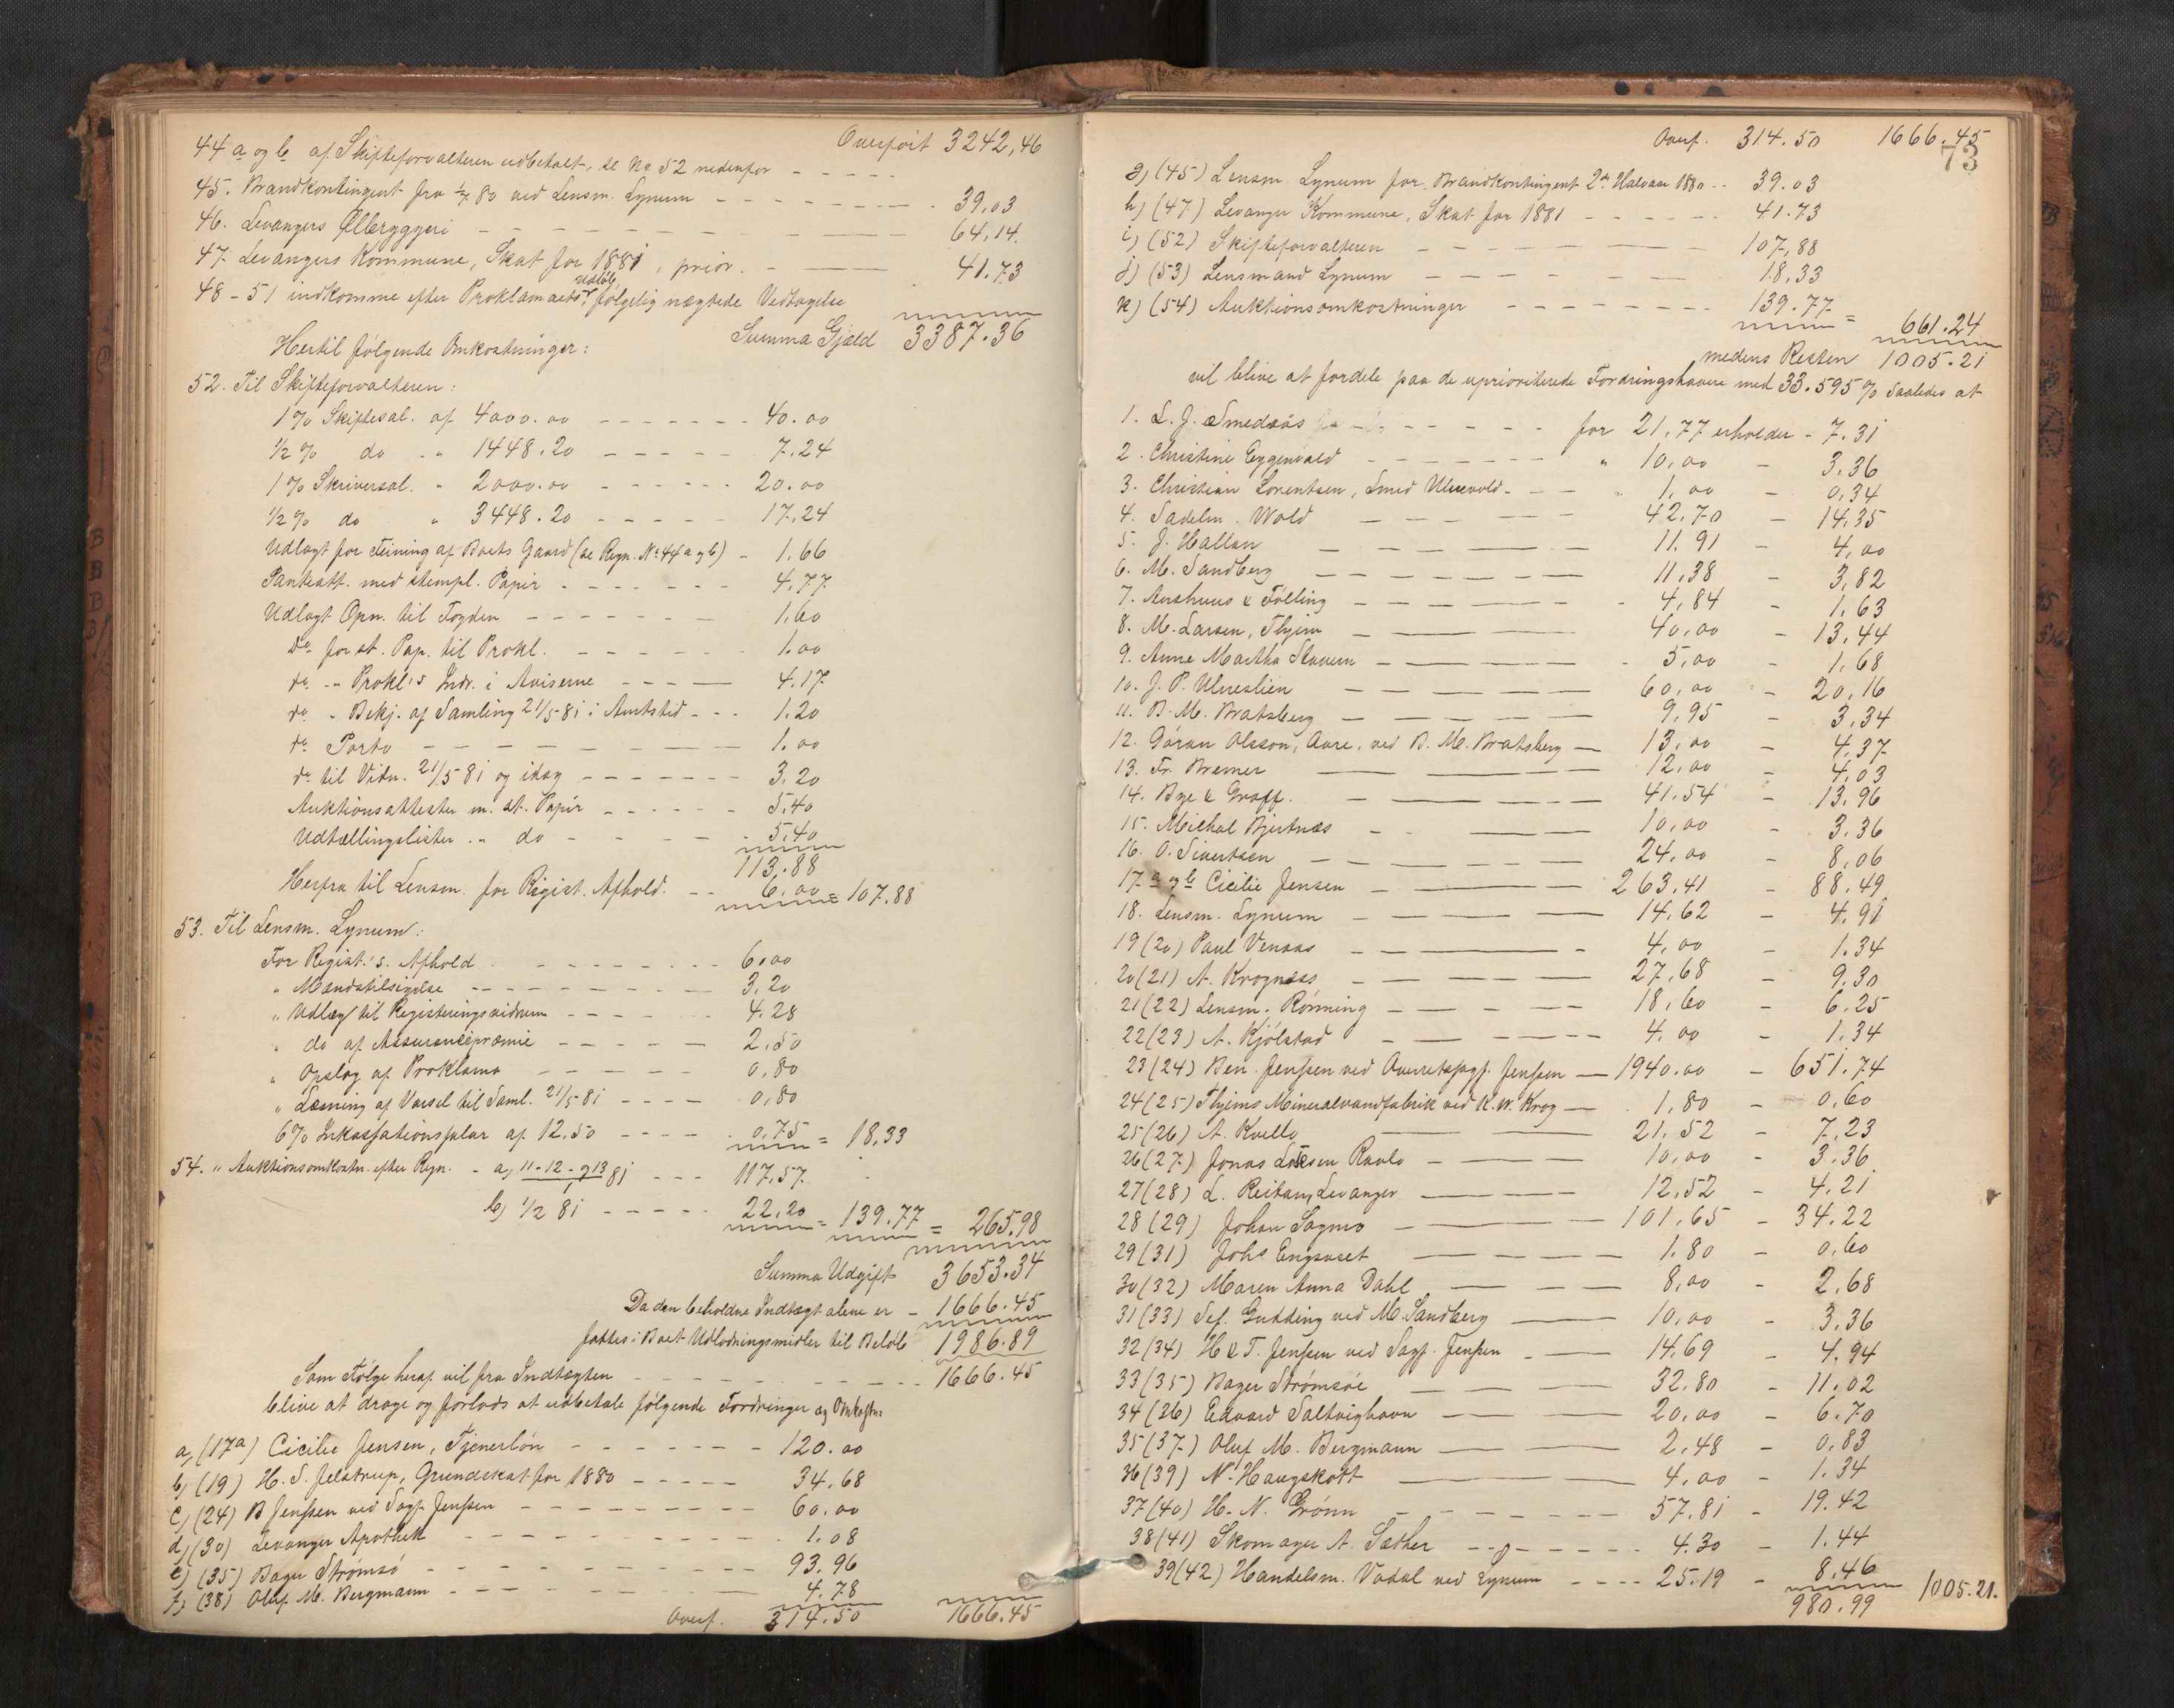 Overført 3242,46
44 a og b af Skifteforvalteren udbetalt, se No 52 nedenfor - - - - -
45. Brandkontingent fra 1/7 80 ved Lensm. Lynum - - - 39,03
46. Levangers Ølbryggeri - - - 64,14.
47. Levangers Kommune, Skat for 1881, prior. - - 41.73
48-51 indkomne efter Proklamaets Udløb, følgelig nægtede Vedtagelse
Summa Gjæld 3387.36
Hertil følgende Omkostninger:
52. Til Skifteforvalteren:
1% Skiftesal. af 4000.00 - - - 40.00
1/2% do - " 1448.20 - - - 7.24
1% Skriversal. " 2000.00 - - - 20.00
1/2% do " 3448.20 - - - 17.24
Udlagt for Feining af Boets Gaard (se Regn. No 44 a og b) - 1.66
Panteatt. med stempl. Papir - - - 4.77
Udlagt Opn. til Fogden - - - 1.60
do for st. Pap. til Prokl. - - - 1.00
do - " Prokl's Indr. i Aviserne - - - 4.17
do - Bekj. af Samling 21/5-81 i Amtstid - - - 1.20
do Porto - - - 1.00
do til Vidn. 21/5 81 og idag - - - 3.20
Auktionsattester m. st. Papir - - - 5.40
Udtællingslister - " do - - - 5.40
113.88
Herfra til Lensm. for Regist. Afhold. - - 6.00 = 107.88
53. Til Lensm. Lynum:
For Regist.'s Afhold - - - 6.00
" Mandstilsigelse - - - 3.20
" Udlæg til Registeringsvidnern - - - 4.28
" do af Assurancepræmie - - - 2.50
" Opslag af Proklama - - - 0,80
" Læsning af Varsel til Saml. 21/5-81 - - - 0,80
6% Inkassationssalær af 12.50 - - - 0.75 = 18.33
54. " Auktionsomkostn. efter Regn. - a) 11-12-og 13/1 81 - - - 117.57
b) 1/2 81 - - - 22.20 = 139.77 = 265.98
Summa Udgift 3653.34
Da den beholdne Indtægt alene er - 1666.45
fattes i Boet Udlodningsmidler til Beløb 1986.89
Som Følge heraf vil fra Indtægten - - - 1666.45
blive at drage og forlods at udbetale følgende Fordringer og Omkostn:
a, (17a) Cicilie Jensen, Tjenerløn - - - 120.00
b, (19) H. S. Jelstrup, Grundskat for 1880 - - - 34.68
c, (24) B Jenssen ved Sagf. Jenssen - - - 60.00
d, (30) Levanger Apothek - - - 1.08
e) (35) Bager Strømsø - - - 93.96
f, (38) Oluf M. Bergmann - - - 4.78
Overf. 314.50 1666.45
Overf. 314.50 1666.45
73
g, (45) Lensm. Lynum for Brandkontingent 2det Halvaar 1880 - - 39.03
h, (47) Levanger Kommune, Skat for 1881 - - - 41.73
i, (52) Skifteforvalteren - - - 107,88
j) (53) Lensmand Lynum - - - 18,33
k) (54) Auktionsomkostninger - - - 139.77 = 661.24
medens Resten 1005.21
vil blive at fordele paa de uprioriterede Fordringshavere med 33.595% saaledes at
1. L. J. Smedsås - - - for 21,77 erholder - 7.31
2. Christine Eggenvald - - - " 10,00 - 3.36
3. Christian Lorentsen, Smed Ulvevold - - - " 1,00 - 0,34
4. Sadelm. Wold - - - 42.70 - 14.35
5. J. Hallan - - - 11.91 - 4,00
6. M. Sandberg - - - 11,38 - 3,82
7. Aushuus & Følling - - - 4,84 - 1.63
8. M. Larsen, Thjem - - - 40,00 - 13.44
9. Anne Martha Stavern - - - 5,00 - 1,68
10. J. P. Ulvestien - - - 60,00 - 20.16
11. B. M. Bratsberg - - - 9,95 - 3.34
12. Gøran Olsson, Aare, ved B. M. Bratsberg - 13,00 - 4,37
13. Fr. Bremer - - - 12,00 - 4.03
14. Bye & Graff. - - - 41.54 - 13.96
15. Michal Bjertnæs - - - 10,00 - 3.36
16. O. Sivertsen - - - 24,00 - 8,06
17. a og b Cicilie Jensen - - - 263.41 - 88.49
18. Lensm. Lynum - - - 14,62 - 4.91
19 (20) Paul Venaas - - - 4,00 - 1.34
20 (21) A. Krognæss - - - 27,68 - 9.30
21 (22) Lensm. Rønning - - - 18,60 - 6.25
22 (23) A. Kjølstad - - - 4,00 - 1.34
23 (24) Ben. Jenssen ved Overretssagf. Jenssen - 1940.00 - 651.74
24 (25) Thjems Mineralvandfabrik ved K. W. Krog - 1,80 - 0,60
25 (26) A. Kvello - - - 21.52 - 7,23
26 (27) Jonas Larsen Ravlo - - - 10,00 - 3.36
27 (28) L. Reitan, Levanger - - - 12,52 - 4.21
28 (29) Johan Sagmo - - - 101.65 - 34.22
29 (31) Johs Engsaset - - - 1.80 - 0,60
30 (32) Maren Anna Dahl - - - 8,00 - 2.68
31 (33) Sef. Gudding ved M. Sandberg - 10,00 - 3.36
32 (34) H & T. Jenssen ved Sagf. Jenssen - 14.69 - 4.94
33 (35) Bager Strømsøe - - - 32.80 - 11.02
34 (36) Edvard Saltvighavn - - - 20,00 - 6.70
35 (37) Oluf M. Bergmann - - - 2,48 - 0,83
36 (39) N. Haugskott - - - 4,00 - 1.34
37 (40) H. N. Grønn - - - 57.81 - 19.42
38 (41) Skomager A. Sæther - - - 4.30 - 1.44
39 (42) Handelsm. Vadal ved Lynum - - - 25.19 - 8.46
980.99 1005.21.